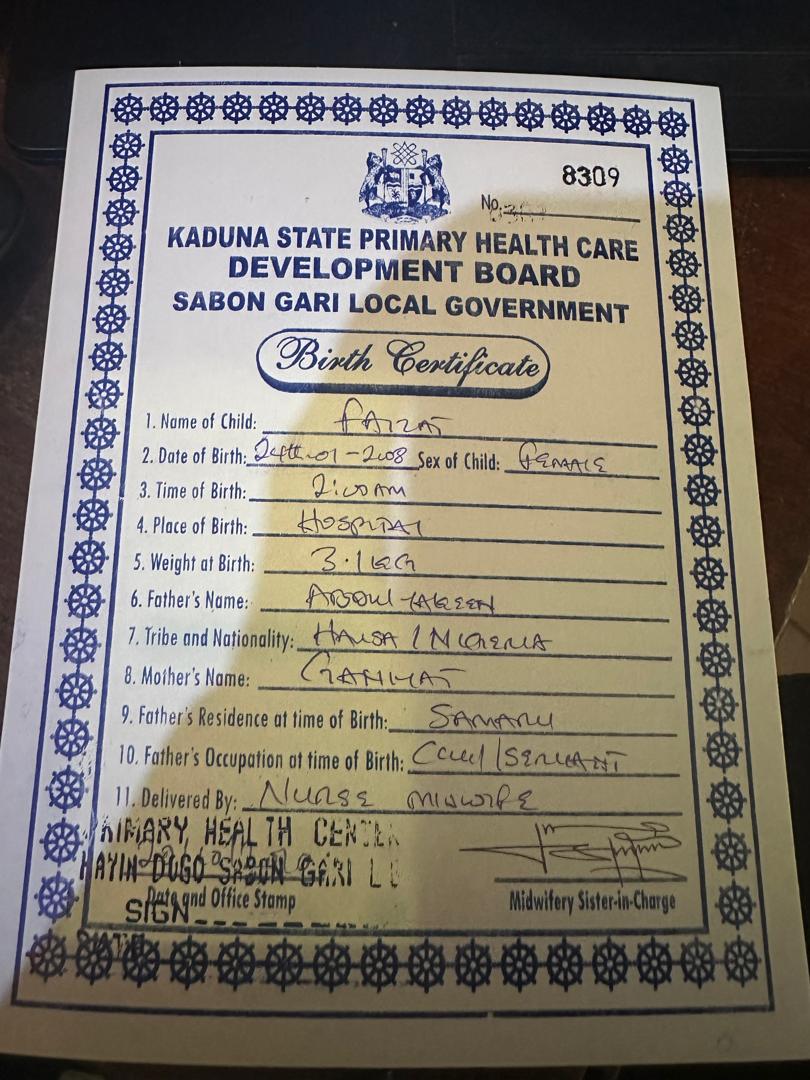 8309
No.
KADUNA STATE PRIMARY HEALTH CARE
DEVELOPMENT BOARD
SABON GARI LOCAL GOVERNMENT
Birth Certificate
1. Name of Child: FAIZAT
2. Date of Birth: 24th-01-2008 Sex of Child: FEMALE
3. Time of Birth: 2:00AM
4. Place of Birth: HOSPITAL
5. Weight at Birth: 3.1KG
6. Father's Name:
7. Tribe and Nationality: HAUSA / NIGERIA
8. Mother's Name: GANIYAT
9. Father's Residence at time of Birth: SAMARU
10. Father's Occupation at time of Birth: CIVIL/SERVANT
11. Delivered By: NURSE MIDWIFE
PRIMARY HEALTH CENTER
HAYIN DOGO SABON GARI L
Date and Office Stamp
SIGN
Midwifery Sister-in-Charge
DATE